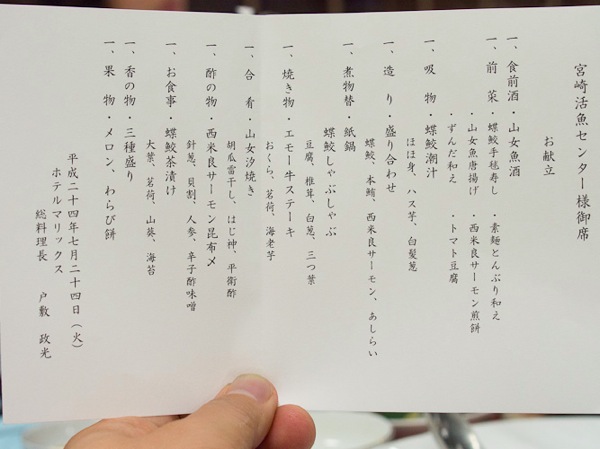 宮崎活魚センター様御席
お献立
一、食前酒・山女魚酒
一、前　菜・蝶鮫手毬寿し　・素麺とんぶり和え
・山女魚唐揚げ　・西米良サーモン煎餅
・ずんだ和え　・トマト豆腐
一、吸　物・蝶鮫潮汁
ほほ身、ハス芋、白髪葱
一、造　り・盛り合わせ
蝶鮫、本鮪、西米良サーモン、あしらい
一、煮物替・紙鍋
蝶鮫しゃぶしゃぶ
豆腐、椎茸、白葱、三つ葉
一、焼き物・エモー牛ステーキ
おくら、茗荷、海老芋
一、合　肴・山女汐焼き
胡瓜雷干し、はじ神、平衛酢
一、酢の物・西米良サーモン昆布〆
針葱、貝割、人参、辛子酢味噌
一、お食事・蝶鮫茶漬け
大葉、茗荷、山葵、海苔
一、香の物・三種盛り
一、果　物・メロン、わらび餅
平成二十四年七月二十四日（火）
ホテルマリックス
総料理長　戸敷　政光